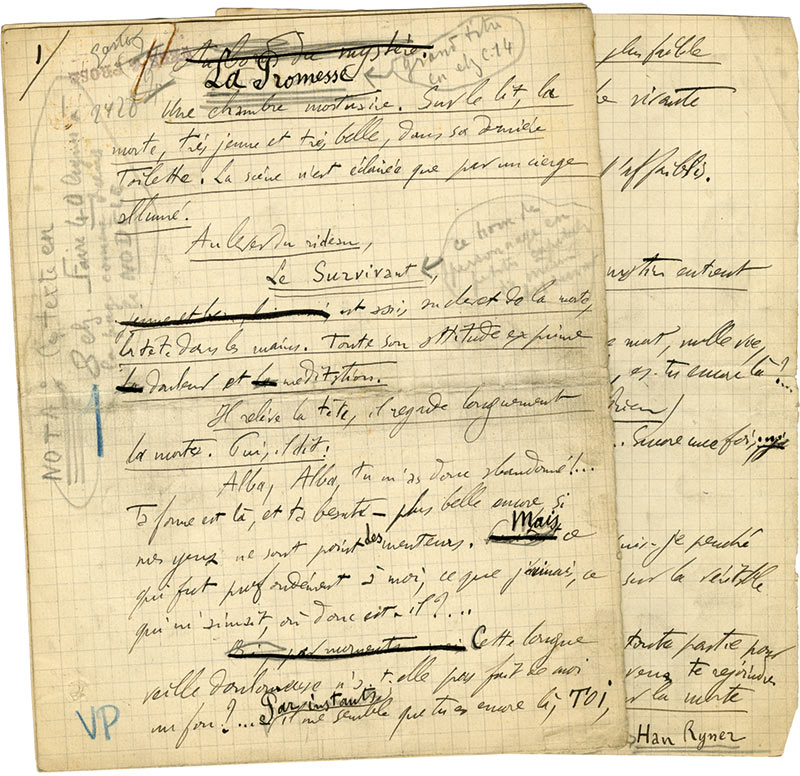 1/
Au bord du mystère.
La Promesse
grand titre
en elz c. 14
2428
Une chambre mortuaire. Sur le lit, la
morte, très jeune et très belle, dans sa dernière
toilette. La scène n'est éclairée que par un cierge
allumé.
Au lever du rideau,
Le Survivant,
ce nom de
personnage en
petites
est assis au chevet de la morte,
la tête dans les mains. Toute son attitude exprime
la douleur et la méditation.
Il relève la tête, il regarde longuement
la morte. Puis, il dit :
Alba, Alba, tu m'as donc abandonné !...
Ta forme est là, et ta beauté — plus belle encore si
mes yeux ne sont point des menteurs. Mais ce
qui fut profondément à moi, ce que j'aimais, ce
qui m'aimait, où donc est-il ?...
Cette longue
veille douloureuse n'a-t-elle pas fait de moi
un fou ?... Par instants il me semble que tu es encore là, TOI,
NOTA : Ce texte en
VP
plus faible
vivante
l'affaiblis.
entrent
mort, nulle vie,
es-tu encore là ?...
rien)
... Encore une fois,
suis-je penché
sur la véritable
toute partie pour
veux te rejoindre
la morte
Han Ryner